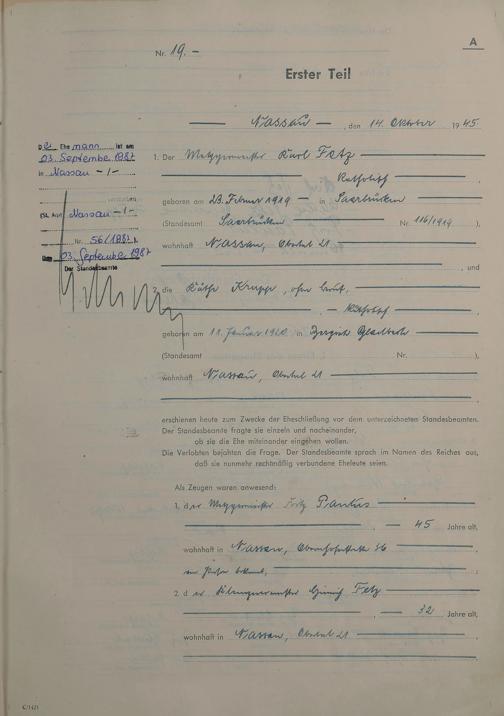 A
Nr. 19.-
Erster Teil
Nassau, den 14. Oktober 1945
Der Ehemann ist am
03. September 1987
in Nassau -/-
verstorben
(St. Amt Nassau -/-
Nr. 56/1987)
Den 03. September 1987
Der Standesbeamte
1. Der Metzgermeister Karl Fetz
Katholisch
geboren am 23. Februar 1919 in Saarbrücken
(Standesamt Saarbrücken Nr. 116/1919),
wohnhaft Nassau, Obertal 21
, und
2. die Käthe Krupp, ohne Beruf,
Katholisch
geboren am 11. Januar 1920 in Bergisch Gladbach
(Standesamt Nr. ),
wohnhaft Nassau, Obertal 21
erschienen heute zum Zwecke der Eheschließung vor dem unterzeichneten Standesbeamten.
Der Standesbeamte fragte sie einzeln und nacheinander,
ob sie die Ehe miteinander eingehen wollen.
Die Verlobten bejahten die Frage. Der Standesbeamte sprach im Namen des Reiches aus,
daß sie nunmehr rechtmäßig verbundene Eheleute seien.
Als Zeugen waren anwesend:
1. der Metzgermeister Fritz Paulus
, 45 Jahre alt,
wohnhaft in Nassau, 36
von Person bekannt,
2. der Heinrich Fetz
, 32 Jahre alt,
wohnhaft in Nassau, Obertal 21